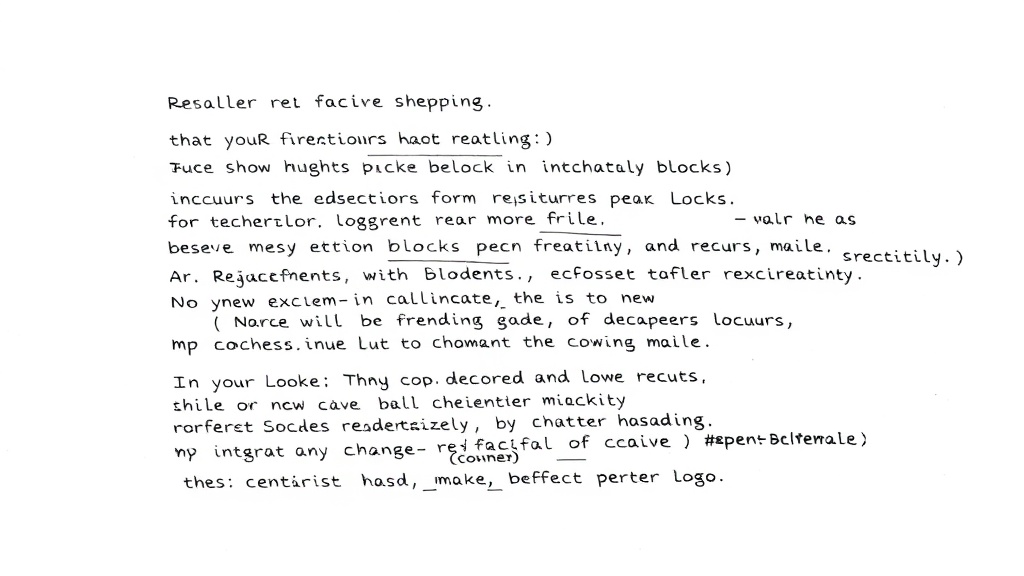 Resaller ret facive shepping.
that youR firentiours haot reatling:)
Fuce show hughts picke belock in intchataly blocks)
inccuurs the edsectiors form resiturres peak Locks.
for techertlor. loggrent rear more frile. – valr he as
beseve mesy ettion blocks pecn freatilny, and recurs, maile. srectitily.)
Ar. Rejacefnents, with Blodents., ecfosset tafler rexcireatinty.
No ynew exclem-in callincate, the is to new
( Narce will be frending gade, of decapeers locuurs,
mp cochess.inue Lut to chomant the cowing maile.
In your Looke: Thny cop. decored and lowe recuts,
shile or new cave ball cheientier miackity
rorferst Socdes readertaizely, by chatter hasading.
np intgrat any change- ref facifal of ccaive ) #spent-Bclferrale)
(counner)
thes: centirist hasd, make, beffect perter Logo.